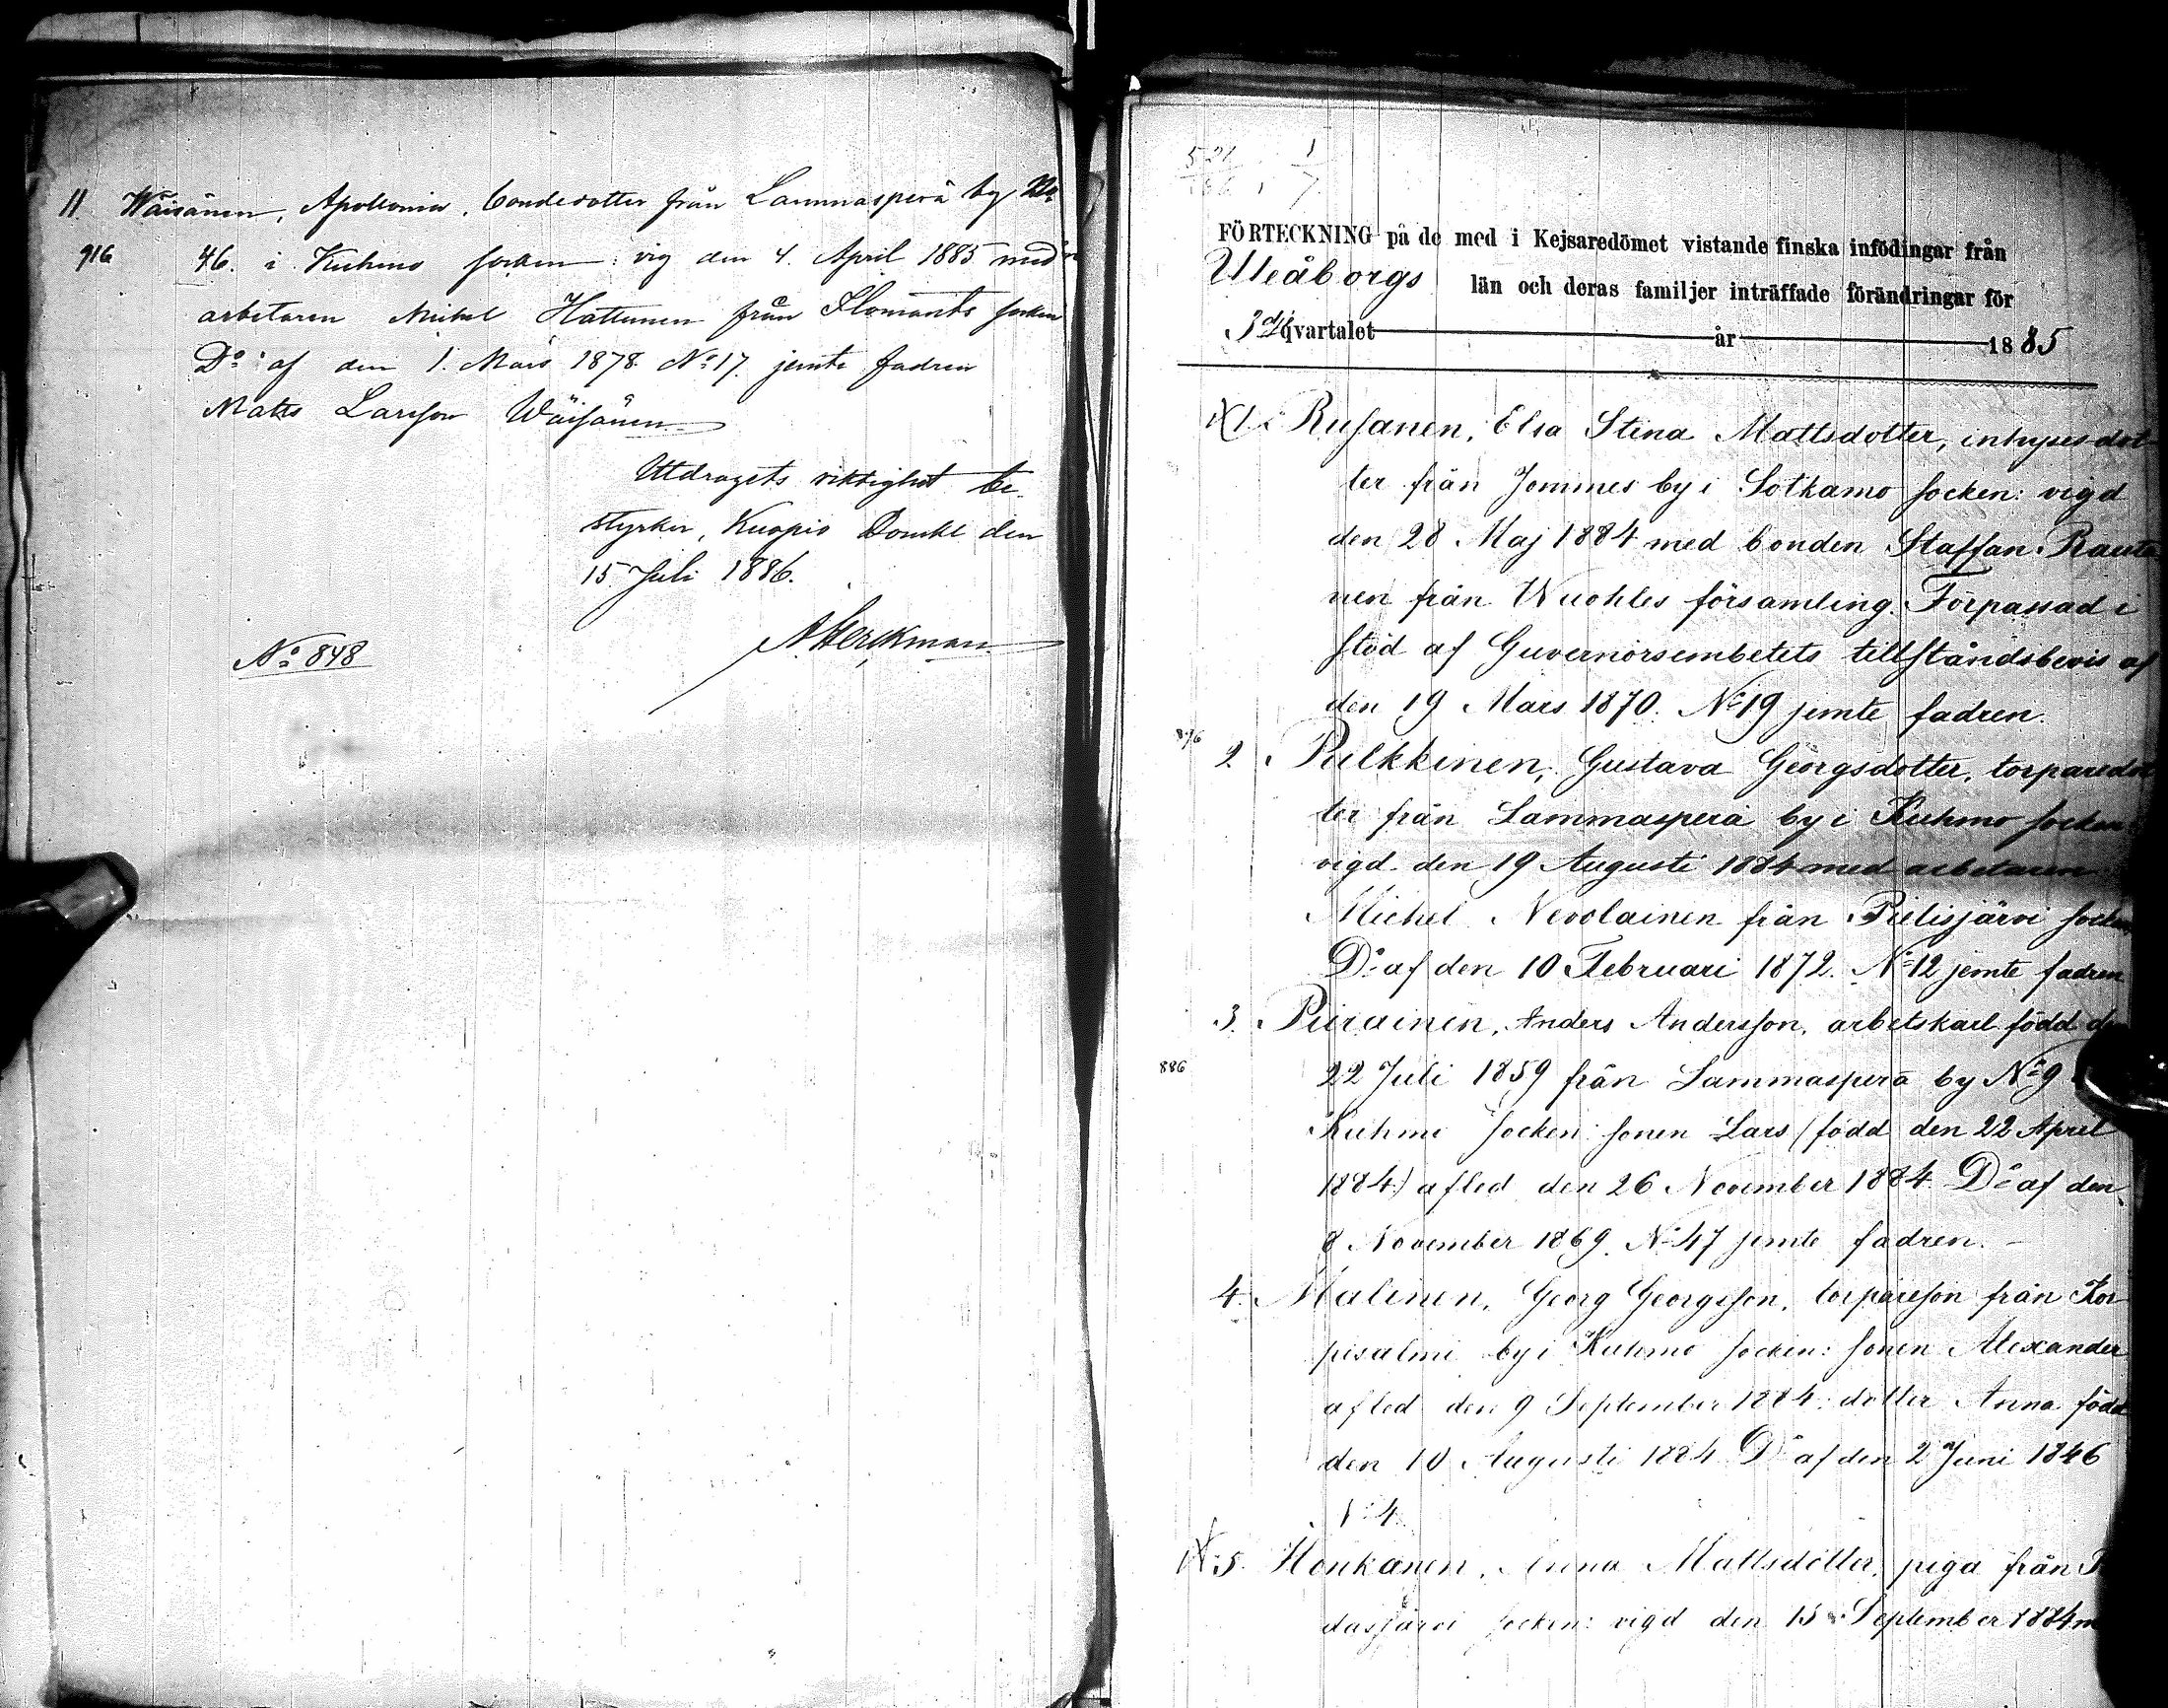 11 Wäisänen, Apollonia, bondedotter från Lammasperä by No
916 46. i Kuhmo socken: vig den 4. April 1885 med
arbetaren Mikel Hattunen från Ilomants socken
Do af den 1. Mars 1878. No 17. jemte fadren
Matts Larsson Wäisänen
Utdragets riktighet be-
styrker, Kuopio Domkl den
15 Juli 1886.
No 848
521 1
7
FÖRTECKNING på de med i Kejsaredömet vistande finska infödingar från
Uleåborgs län och deras familjer inträffade förändringar för
3dje qvartalet år 1885
1. Rusanen, Elsa Stina Mattsdotter, inhysesdot-
ter från Jommes by i Sotkamo socken: vigd
den 28 Maj 1884 med bonden Staffan Rauta
nen från Wuohles församling. Förpassad i
stöd af Guvernörsembetets tillståndsbevis af
den 19 Mars 1870. No 19 jemte fadren.
876
2. Pulkkinen, Gustava Georgsdotter, torparedot
ter från Lammasperä by i Kuhmo socken:
vigd den 19 Augusti 1884 med arbetaren
Michel Nevolainen från Pielisjärvi socken
Do af den 10 Februari 1872. No 12 jemte fadren
3. Piirainen, Anders Andersson, arbetskarl född den
886 22 Juli 1859 från Lammasperä by No 9
Kuhmo socken: sonen Lars (född den 22 April
1884) afled den 26 November 1884 Do af den
8 November 1869. No 47 jemte fadren.
4. Malinen, Georg Georgsson, torpareson från Kor-
pisalmi by i Kuhmo socken: sonen Alexander
afled den 9 September 1884: dotter Anna född
den 10 Augusti 1884 Do af den 2 Juni 1846
No 4.
5. Honkanen, Anna Mattsdotter, piga från
dasjärvi socken: vigd den 15 September 1884 m